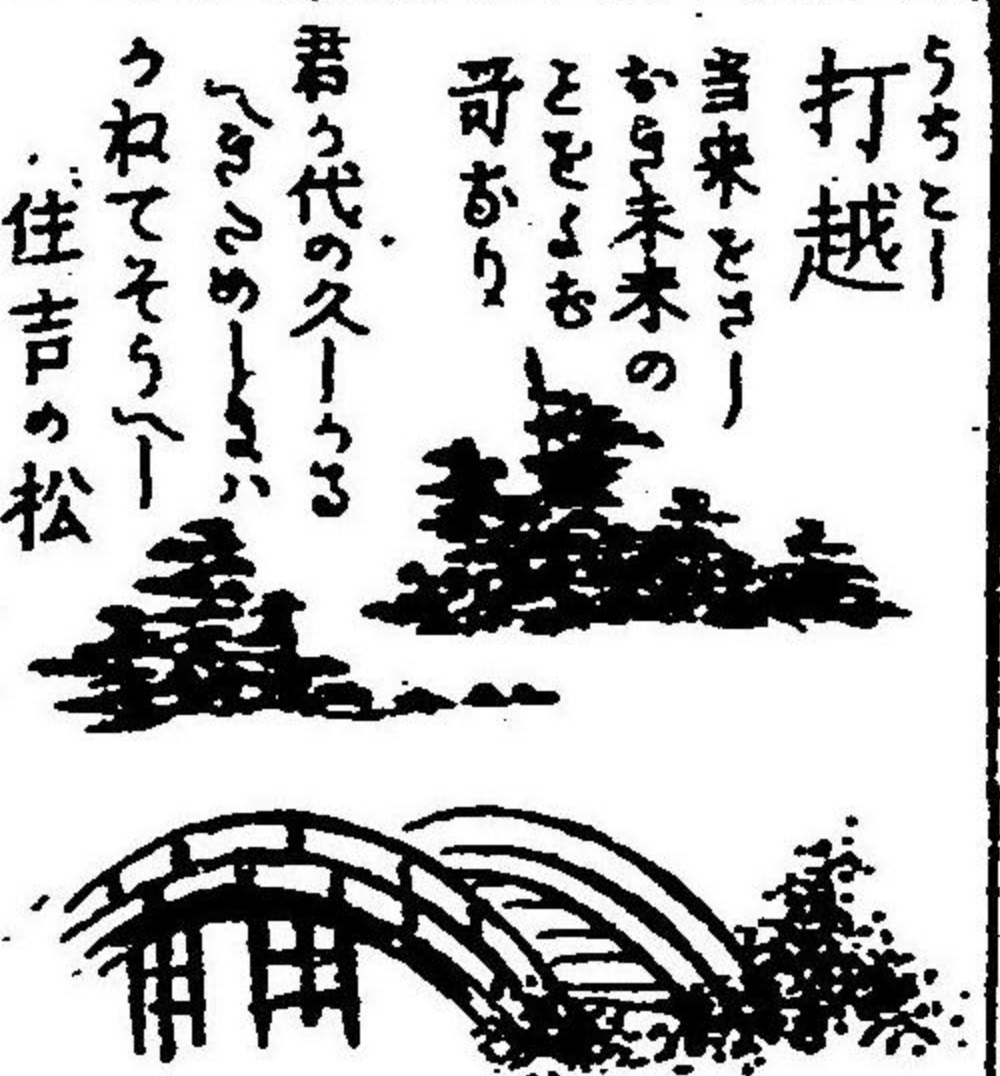 うちこし
打越
当来をさし
おき未来の
ことをよむ
哥なり
君か代の久しかる
へきためしにハ
かねてそうへし
住吉の松